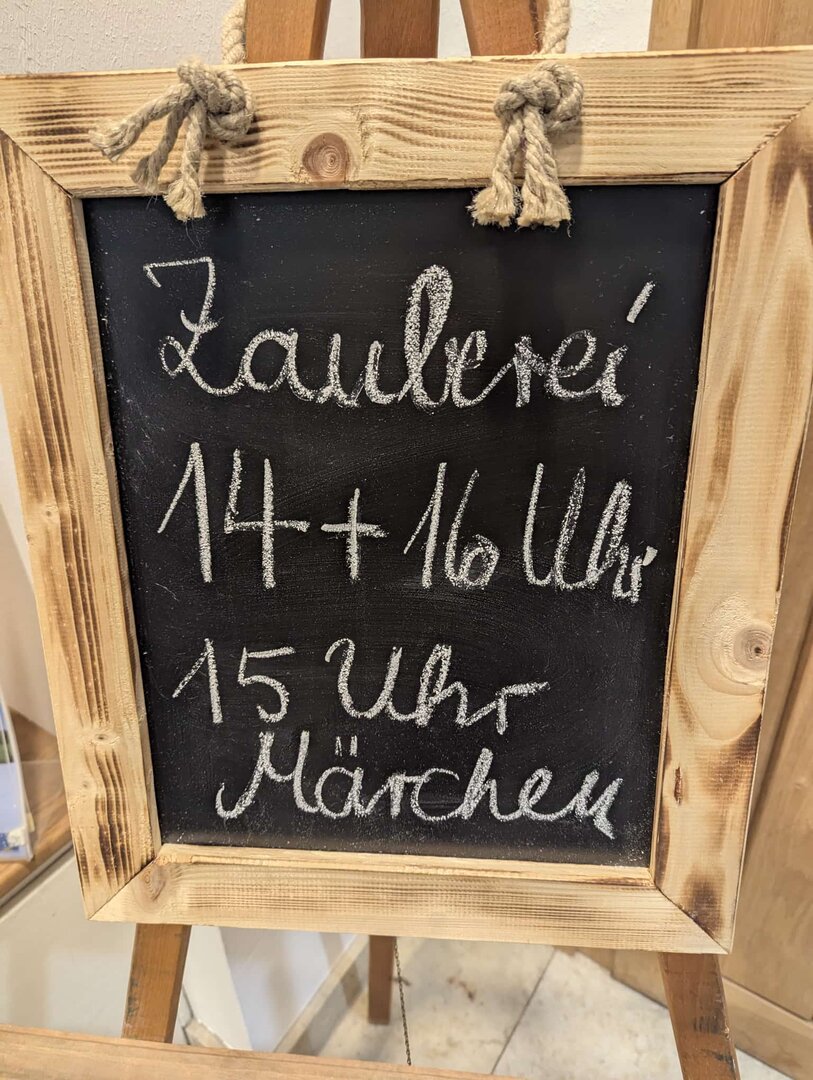 Zauberei
14 + 16 Uhr
15 Uhr
Märchen